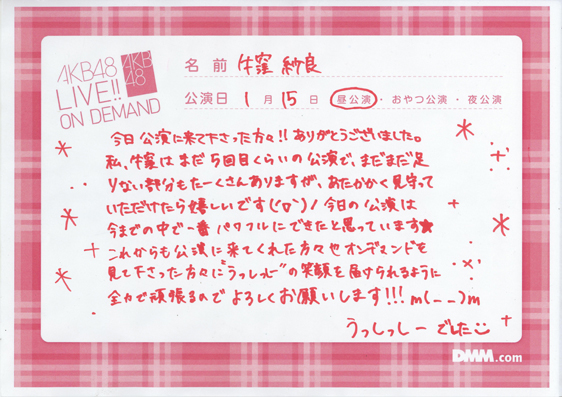 AKB48
LIVE!!
ON DEMAND
AKB
48
名前 牛窪 紗良
公演日 1月15日 昼公演・おやつ公演・夜公演
今日公演に来て下さった方々!!ありがとうございました。
私、牛窪はまだ5回目くらいの公演で、まだまだ足
りない部分もたーくさんありますが、あたたかく見守って
いただけたら嬉しいです('ロ`)ノ今日の公演は
今までの中で一番パワフルにできたと思っています★
これからも公演に来てくれた方々やオンデマンドを
見て下さった方々に"うっしっしー"の笑顔を届けられるように
全力で頑張るのでよろしくお願いします!!! m(_ _)m
うっしっしーでした
DMM.com